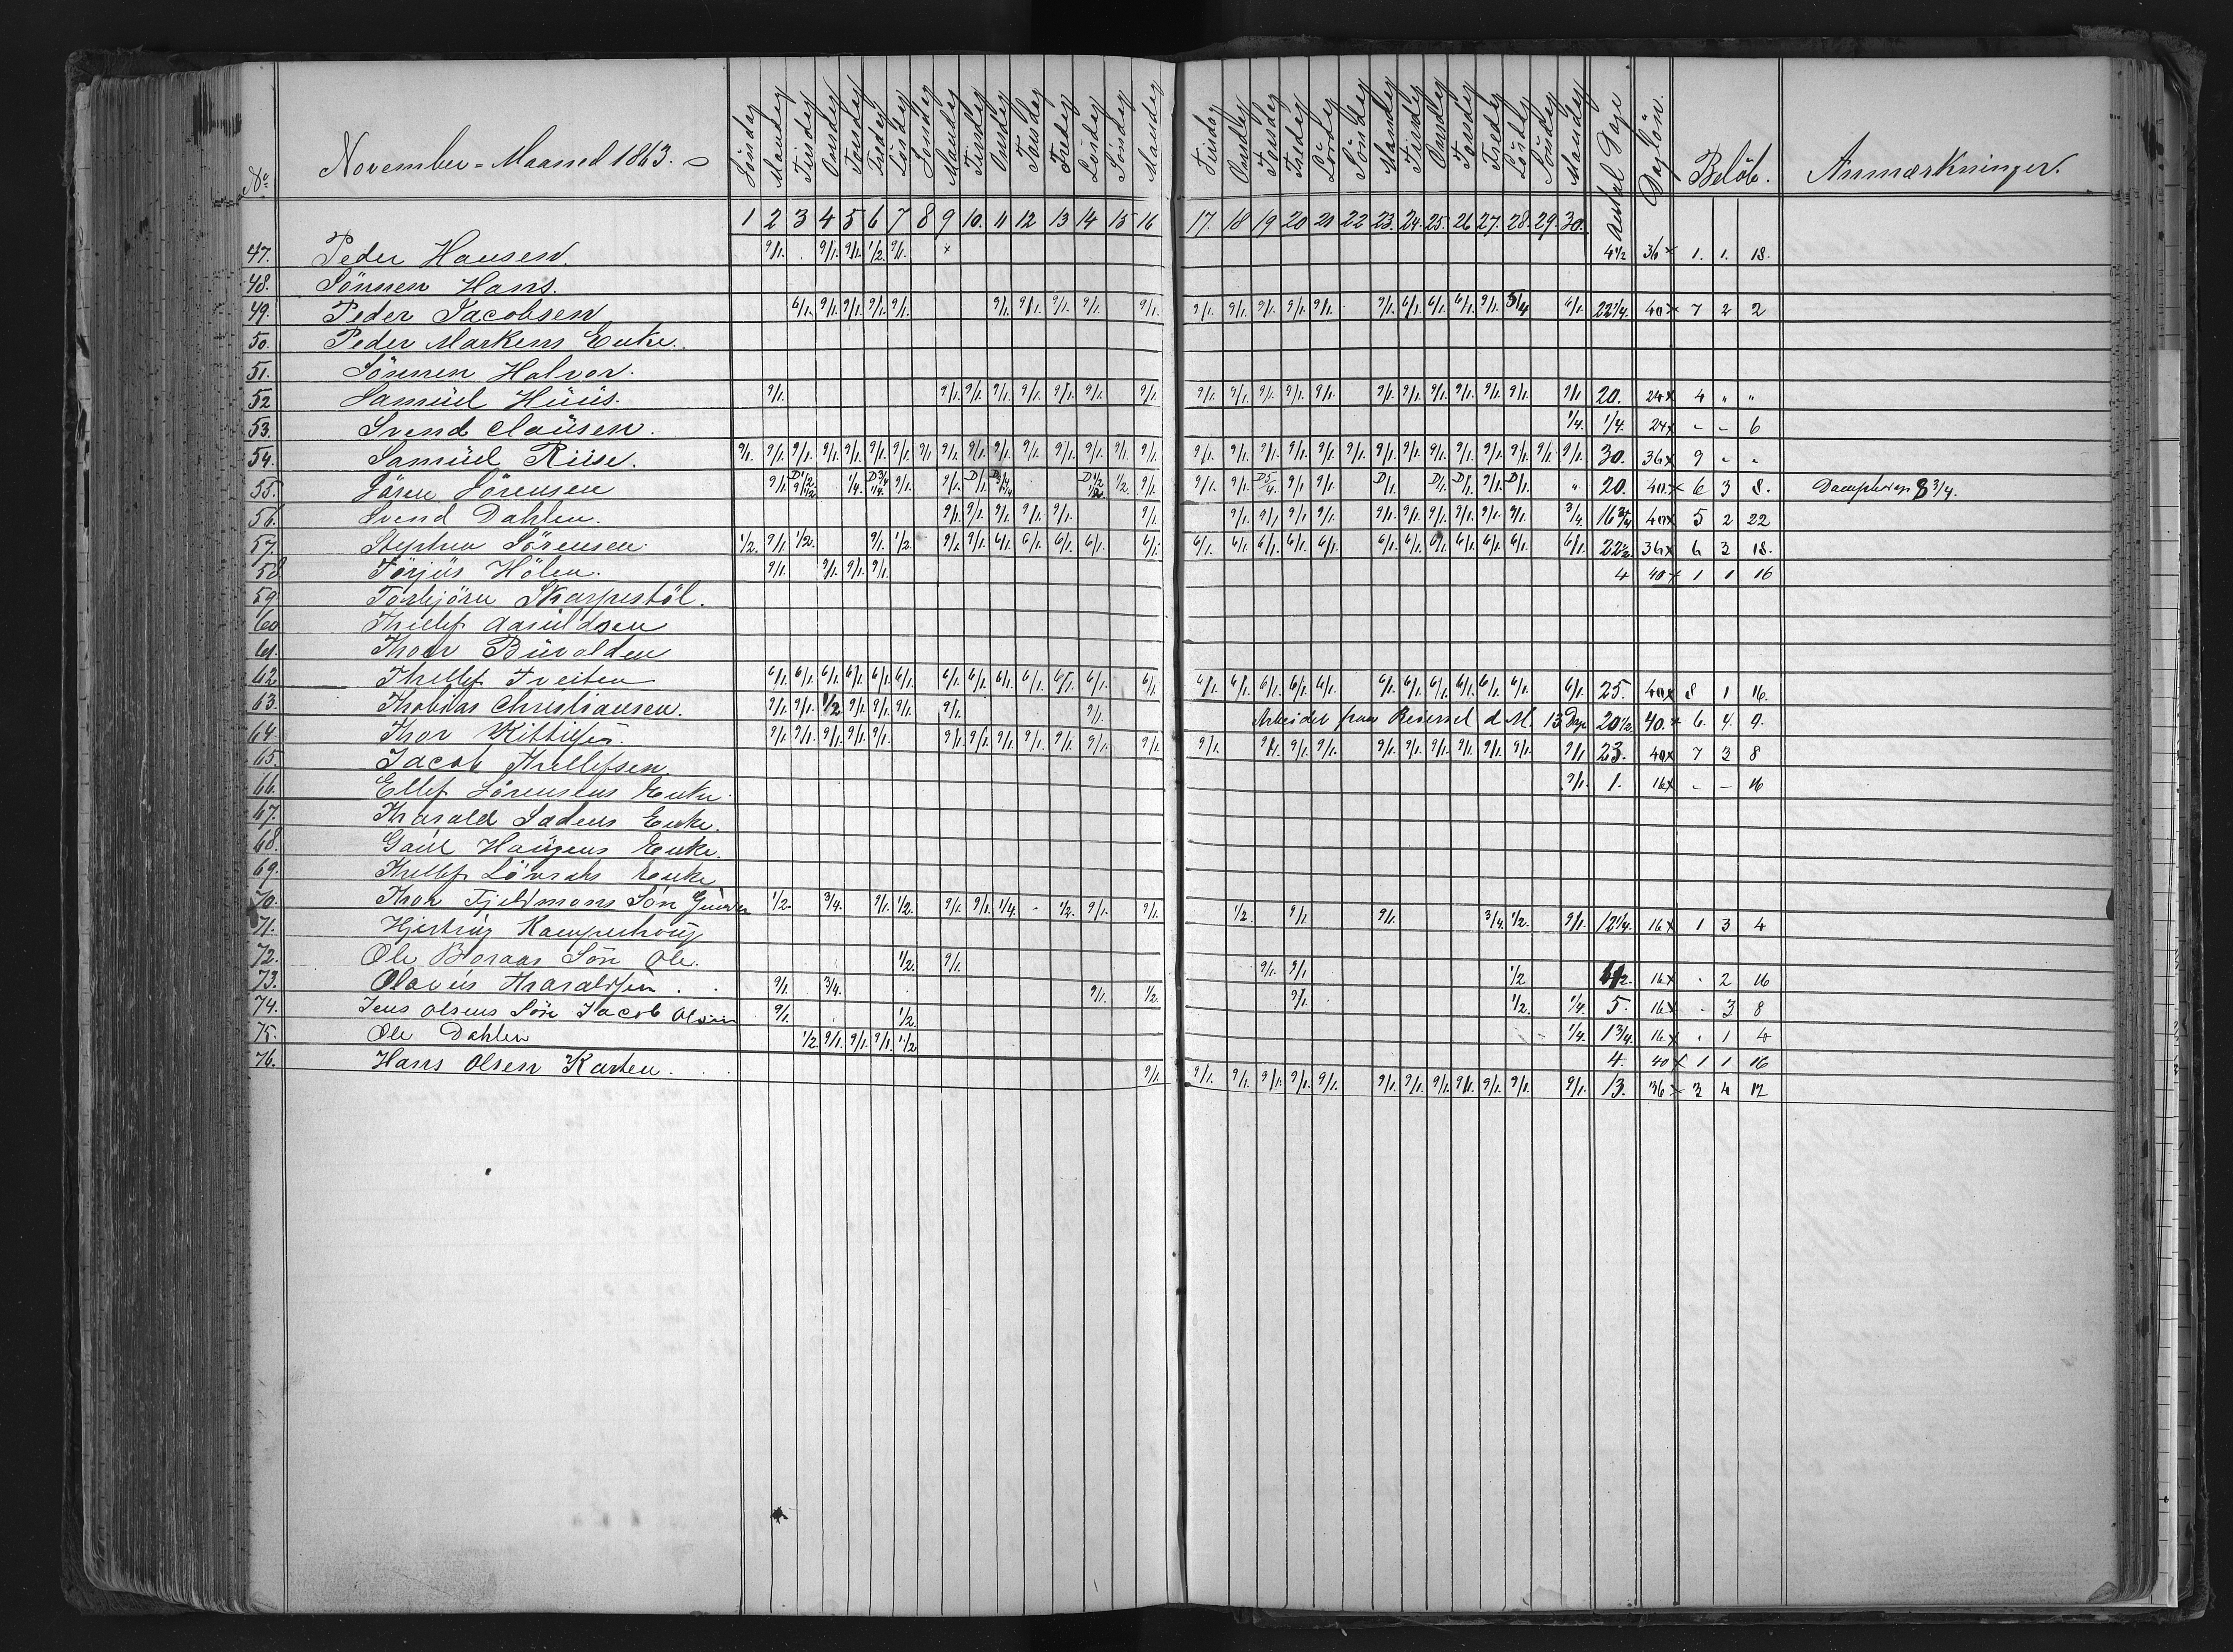 No. November-Maaned 1863. Söndag Mandag Tirsdag Onsdag Torsdag Fredag Lördag Söndag Mandag Tirsdag Onsdag Torsdag Fredag Lördag Söndag Mandag Tirsdag Onsdag Torsdag Fredag Lördag Söndag Mandag Tirsdag Onsdag Torsdag Fredag Lördag Söndag Mandag Antal Dage Daglön. Belöb. Anmærkninger.
1 2 3 4 5 6 7 8 9 10. 11 12 13 14 15 16 17. 18 19 20 21 22 23. 24. 25. 26 27. 28. 29. 30.
47. Peder Hansen. 9/1. 9/1. 9/1. 1/2. 9/1. x 4 1/2 36 x 1. 1. 18.
48. Sönnen Hans.
49. Peder Jacobsen 6/1. 9/1. 9/1. 9/1. 9/1. 9/1. 9/1. 9/1. 9/1. 9/1. 9/1. 9/1. 9/1. 9/1. 9/1. 9/1. 6/1. 6/1. 6/1. 9/1. 5/4 6/1. 22 1/4. 40 x 7 2 2
50. Peder Markens Enke.
51. Sönnen Halvor.
52 Samüel Hüüs. 9/1. 9/1. 9/1. 9/1. 9/1. 9/1. 9/1. 9/1. 9/1. 9/1. 9/1. 9/1. 9/1. 9/1. 9/1. 9/1. 9/1. 9/1. 9/1. 9/1 20. 24 x 4 " "
53. Svend Claüsen. 1/4. 1/4. 24 x - - 6
54. Samüel Riise. 9/1. 9/1. 9/1. 9/1. 9/1. 9/1. 9/1. 9/1 9/1. 9/1. 9/1. 9/1. 9/1. 9/1. 9/1. 9/1. 9/1. 9/1. 9/1. 9/1. 9/1. 9/1. 9/1. 9/1. 9/1. 9/1. 9/1. 9/1. 9/1. 9/1. 30. 36 x 9 - -
55. Sören Sörensen 9/1. D 1/2 1/4. D 3/4 1/4. 9/1. 9/1. D/1. D 1/2 1/2. 9/1. 9/1. 9/1. D 5/4. 9/1 9/1. D/1. D/1. D/1. 9/1. D/1. " 20. 40. x 6 3 8. 8 3/4.
56. Svend Dahlen. 9/1. 9/1. 9/1. 9/1. 9/1. 9/1. 9/1. 9/1. 9/1. 9/1. 9/1. 9/1. 9/1. 9/1. 9/1. 9/1. 3/4. 16 3/4 40 x 5 2 22
57. Stephen Sörensen 1/2. 9/1. 1/2. 9/1. 1/2. 9/1. 9/1. 6/1. 6/1. 6/1. 6/1. 6/1. 6/1. 6/1. 6/1. 6/1. 6/1. 6/1. 6/1. 6/1. 6/1. 6/1. 6/1. 6/1. 22 1/2. 36 x 6 3 18.
58 Torjüs Hölen. 9/1. 9/1. 9/1. 9/1. 4 40 x 1 1 16
59. Torbjörn Skarpestöl.
60 Thellef Aanüldsen
61. Thoer
62 Thellef Tveiten 6/1. 6/1. 6/1. 6/1. 6/1. 6/1. 6/1. 6/1. 6/1. 6/1. 6/1. 6/1. 6/1. 6/1. 6/1. 6/1. 6/1. 6/1. 6/1. 6/1. 6/1. 6/1. 6/1. 6/1. 6/1. 25. 40 x 8 1 16.
63. Thobias Christiansen. 9/1. 9/1. 1/2 9/1. 9/1. 9/1. 9/1. 9/1. Arbeidet paa d. M. 13 Dage 20 1/2 40. x 6. 4. 9.
64. Thor Kittilsen. 9/1. 9/1. 9/1. 9/1. 9/1. 9/1. 9/1. 9/1. 9/1. 9/1. 9/1. 9/1. 9/1. 9/1. 9/1. 9/1. 9/1. 9/1. 9/1. 9/1. 9/1. 9/1. 9/1 23. 40 x 7 3 8
65. Jacob Thellefsen. 9/1. 1. 16 x - - 16
66. Ellef Sörensens Enke.
67. Harald Enke.
68. Enke.
69. Thellef Enke
70. Thor Fjeldmans Sön Gunder 1/2. 3/4. 9/1. 1/2. 9/1. 9/1. 1/4. - 1/2. 9/1. 9/1. 1/2. 9/1. 9/1. 3/4. 1/2. 9/1. 12 1/4. 16 x 1 3 4
71. Kamperhoug
72. Ole Boraas Sön Ole. 1/2. 9/1. 9/1. 9/1. 1/2 16 x . 2 16
73. Olavüs Haraldsen . . 9/1. 3/4. 9/1. 1/2. 9/1. 1/2. 1/4. 5. 16 x . 3 8
74. Jens Olsens Sön Jacob Olsen 9/1. 1/2. 1/4. 1 3/4. 16 x . 1 4
75. Ole Dahlen 1/2. 9/1. 9/1. 9/1. 1/2 4. 40 x 1 1 16
76. Hans Olsen Karten . . . 9/1. 9/1. 9/1. 9/1. 9/1. 9/1. 9/1. 9/1. 9/1. 9/1. 9/1. 9/1. 9/1. 13. 36 x 3 4 12